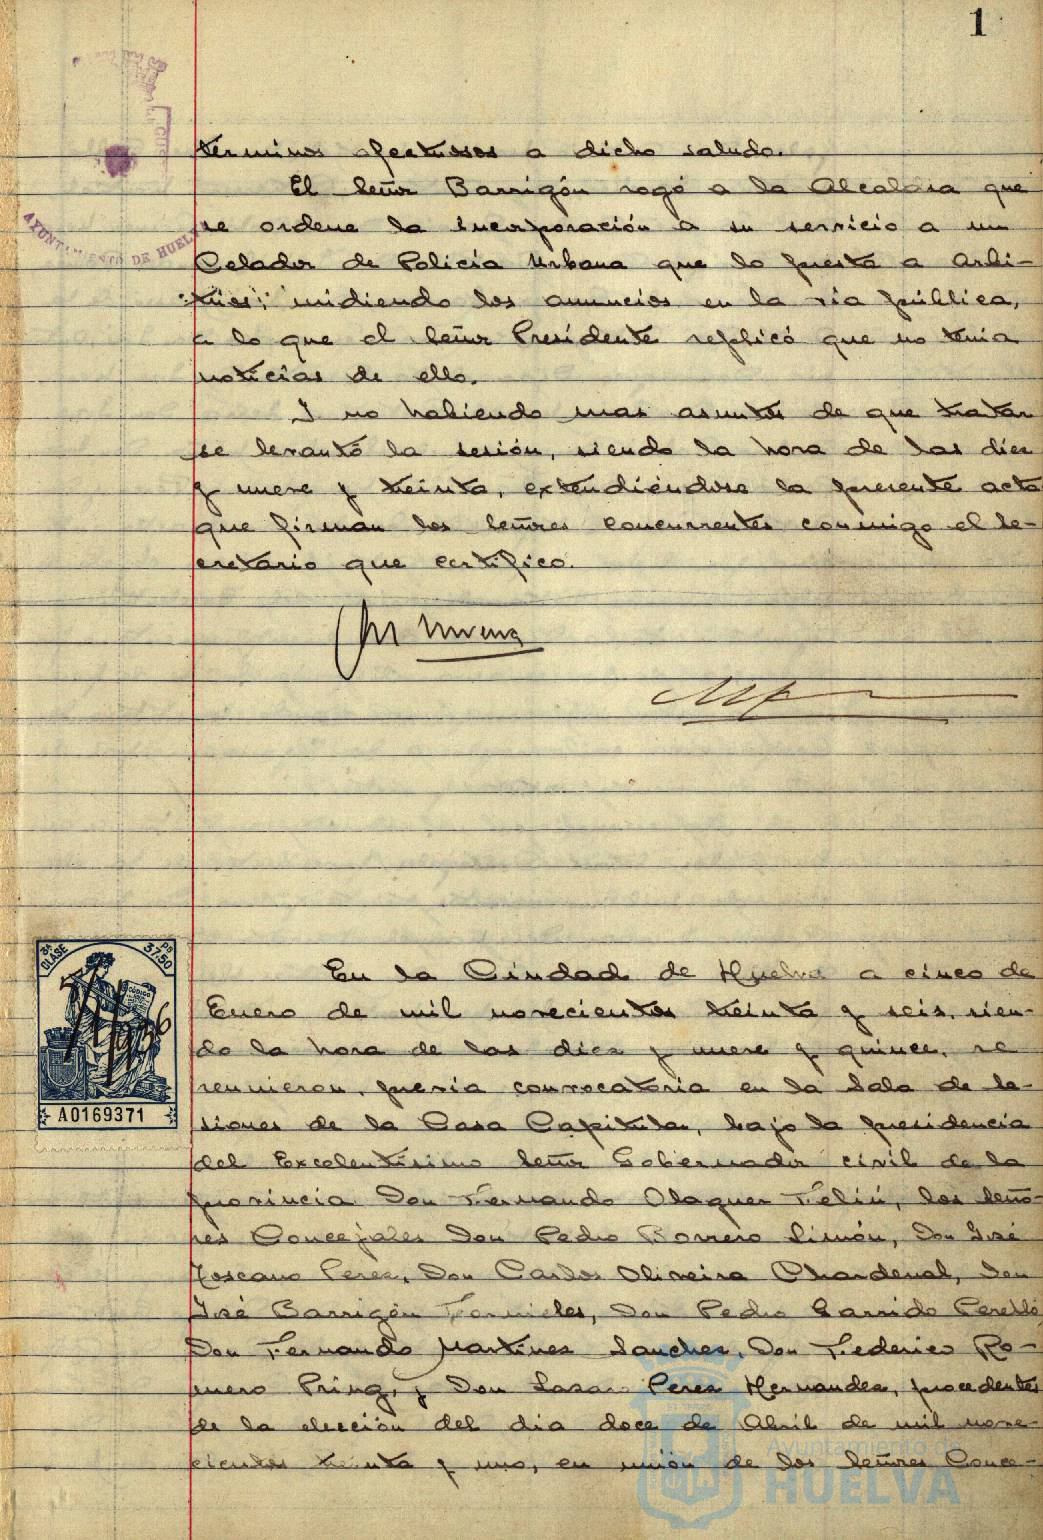 1
AYUNTAMIENTO DE HUELVA
términos afectuosos a dicho saludo.
El Señor Barrigón rogó a la Alcaldía que
se ordene la incorporación a su servicio a un
Celador de Policía Urbana que lo presta a Arbi-
trios, midiendo los anuncios en la vía pública,
a lo que el Señor Presidente replicó que no tenía
noticias de ello.
Y no habiendo mas asuntos de que tratar
se levantó la sesión, siendo la hora de las diez
y nueve y treinta, extendiéndose la presente acta
que firman los Señores concurrentes conmigo el Se-
cretario que certifico.
3ª CLASE
37.50
CÓDIGO
7/1/936
A0169371
En la Ciudad de Huelva a cinco de
Enero de mil novecientos treinta y seis, sien-
do la hora de las diez y nueve y quince, se
reunieron, previa convocatoria en la Sala de Se-
siones de la Casa Capitular, bajo la presidencia
del Excelentísimo Señor Gobernador civil de la
provincia Don Fernando Olaguer Feliú, los Seño-
res Concejales Don Pedro Borrero Limón, Don José
Toscano Perez, Don Carlos Oliveira Chardenal, Don
José Barrigón Fornieles, Don Pedro Garrido Perelló,
Don Fernando Martinez Sanchez, Don Federico Ro-
mero Pring, y Don Lazaro Perez Hernandez, procedentes
de la elección del dia doce de Abril de mil nove-
cientos treinta y uno, en unión de los Señores Conce-
Ayuntamiento de
HUELVA